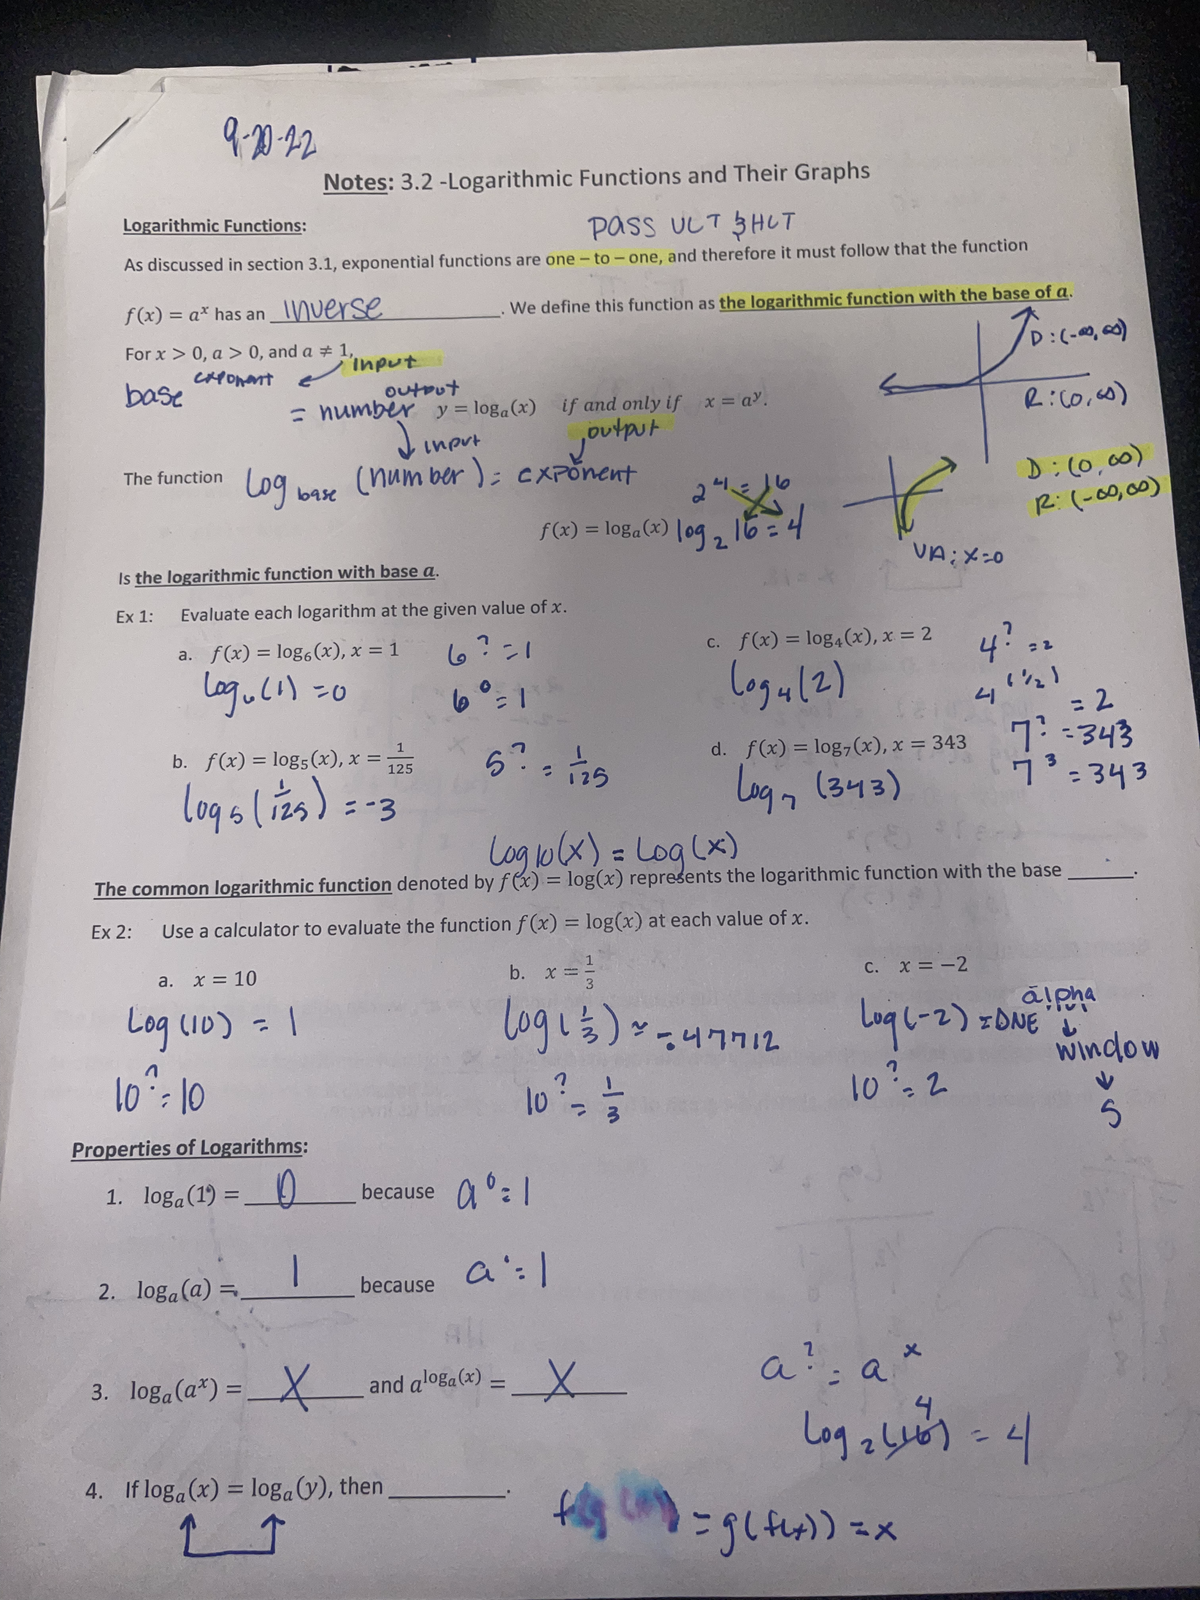 9-20-22
Notes: 3.2 -Logarithmic Functions and Their Graphs
Logarithmic Functions:
pass VLT & HLT
As discussed in section 3.1, exponential functions are one – to – one, and therefore it must follow that the function
f(x) = aˣ has an inverse. We define this function as the logarithmic function with the base of a.
For x > 0, a > 0, and a ≠ 1,
input
D: (-∞, ∞)
base exponent
output
R: (0, ∞)
= number y = logₐ(x) if and only if x = aʸ.
input
output
The function Log base (number) = exponent
D: (0, ∞)
R: (-∞, ∞)
2⁴ = 16
f(x) = logₐ(x) log₂ 16 = 4
VA: x=0
Is the logarithmic function with base a.
Ex 1: Evaluate each logarithm at the given value of x.
a. f(x) = log₆(x), x = 1
6^? = 1
Log₆(1) = 0
6⁰ = 1
c. f(x) = log₄(x), x = 2
4^? = 2
Log₄(2)
4^(1/2) = 2
b. f(x) = log₅(x), x = 1/125
5^? = 1/125
log₅(1/125) = -3
d. f(x) = log₇(x), x = 343
7^? = 343
Log₇(343)
7³ = 343
Log10(x) = Log(x)
The common logarithmic function denoted by f(x) = log(x) represents the logarithmic function with the base ______.
Ex 2: Use a calculator to evaluate the function f(x) = log(x) at each value of x.
a. x = 10
Log(10) = 1
10^? = 10
b. x = 1/3
Log(1/3) ≈ -.47712
10^? = 1/3
c. x = −2
Log(-2) = DNE
10^? = 2
alpha
↓
window
↓
5
Properties of Logarithms:
1. logₐ(1) = 0 because a⁰ = 1
2. logₐ(a) = 1 because a¹ = 1
3. logₐ(aˣ) = X and a^logₐ(x) = X
a^? = aˣ
Log₂(16) = 4
4
4. If logₐ(x) = logₐ(y), then ______.
= g(f(x)) = x